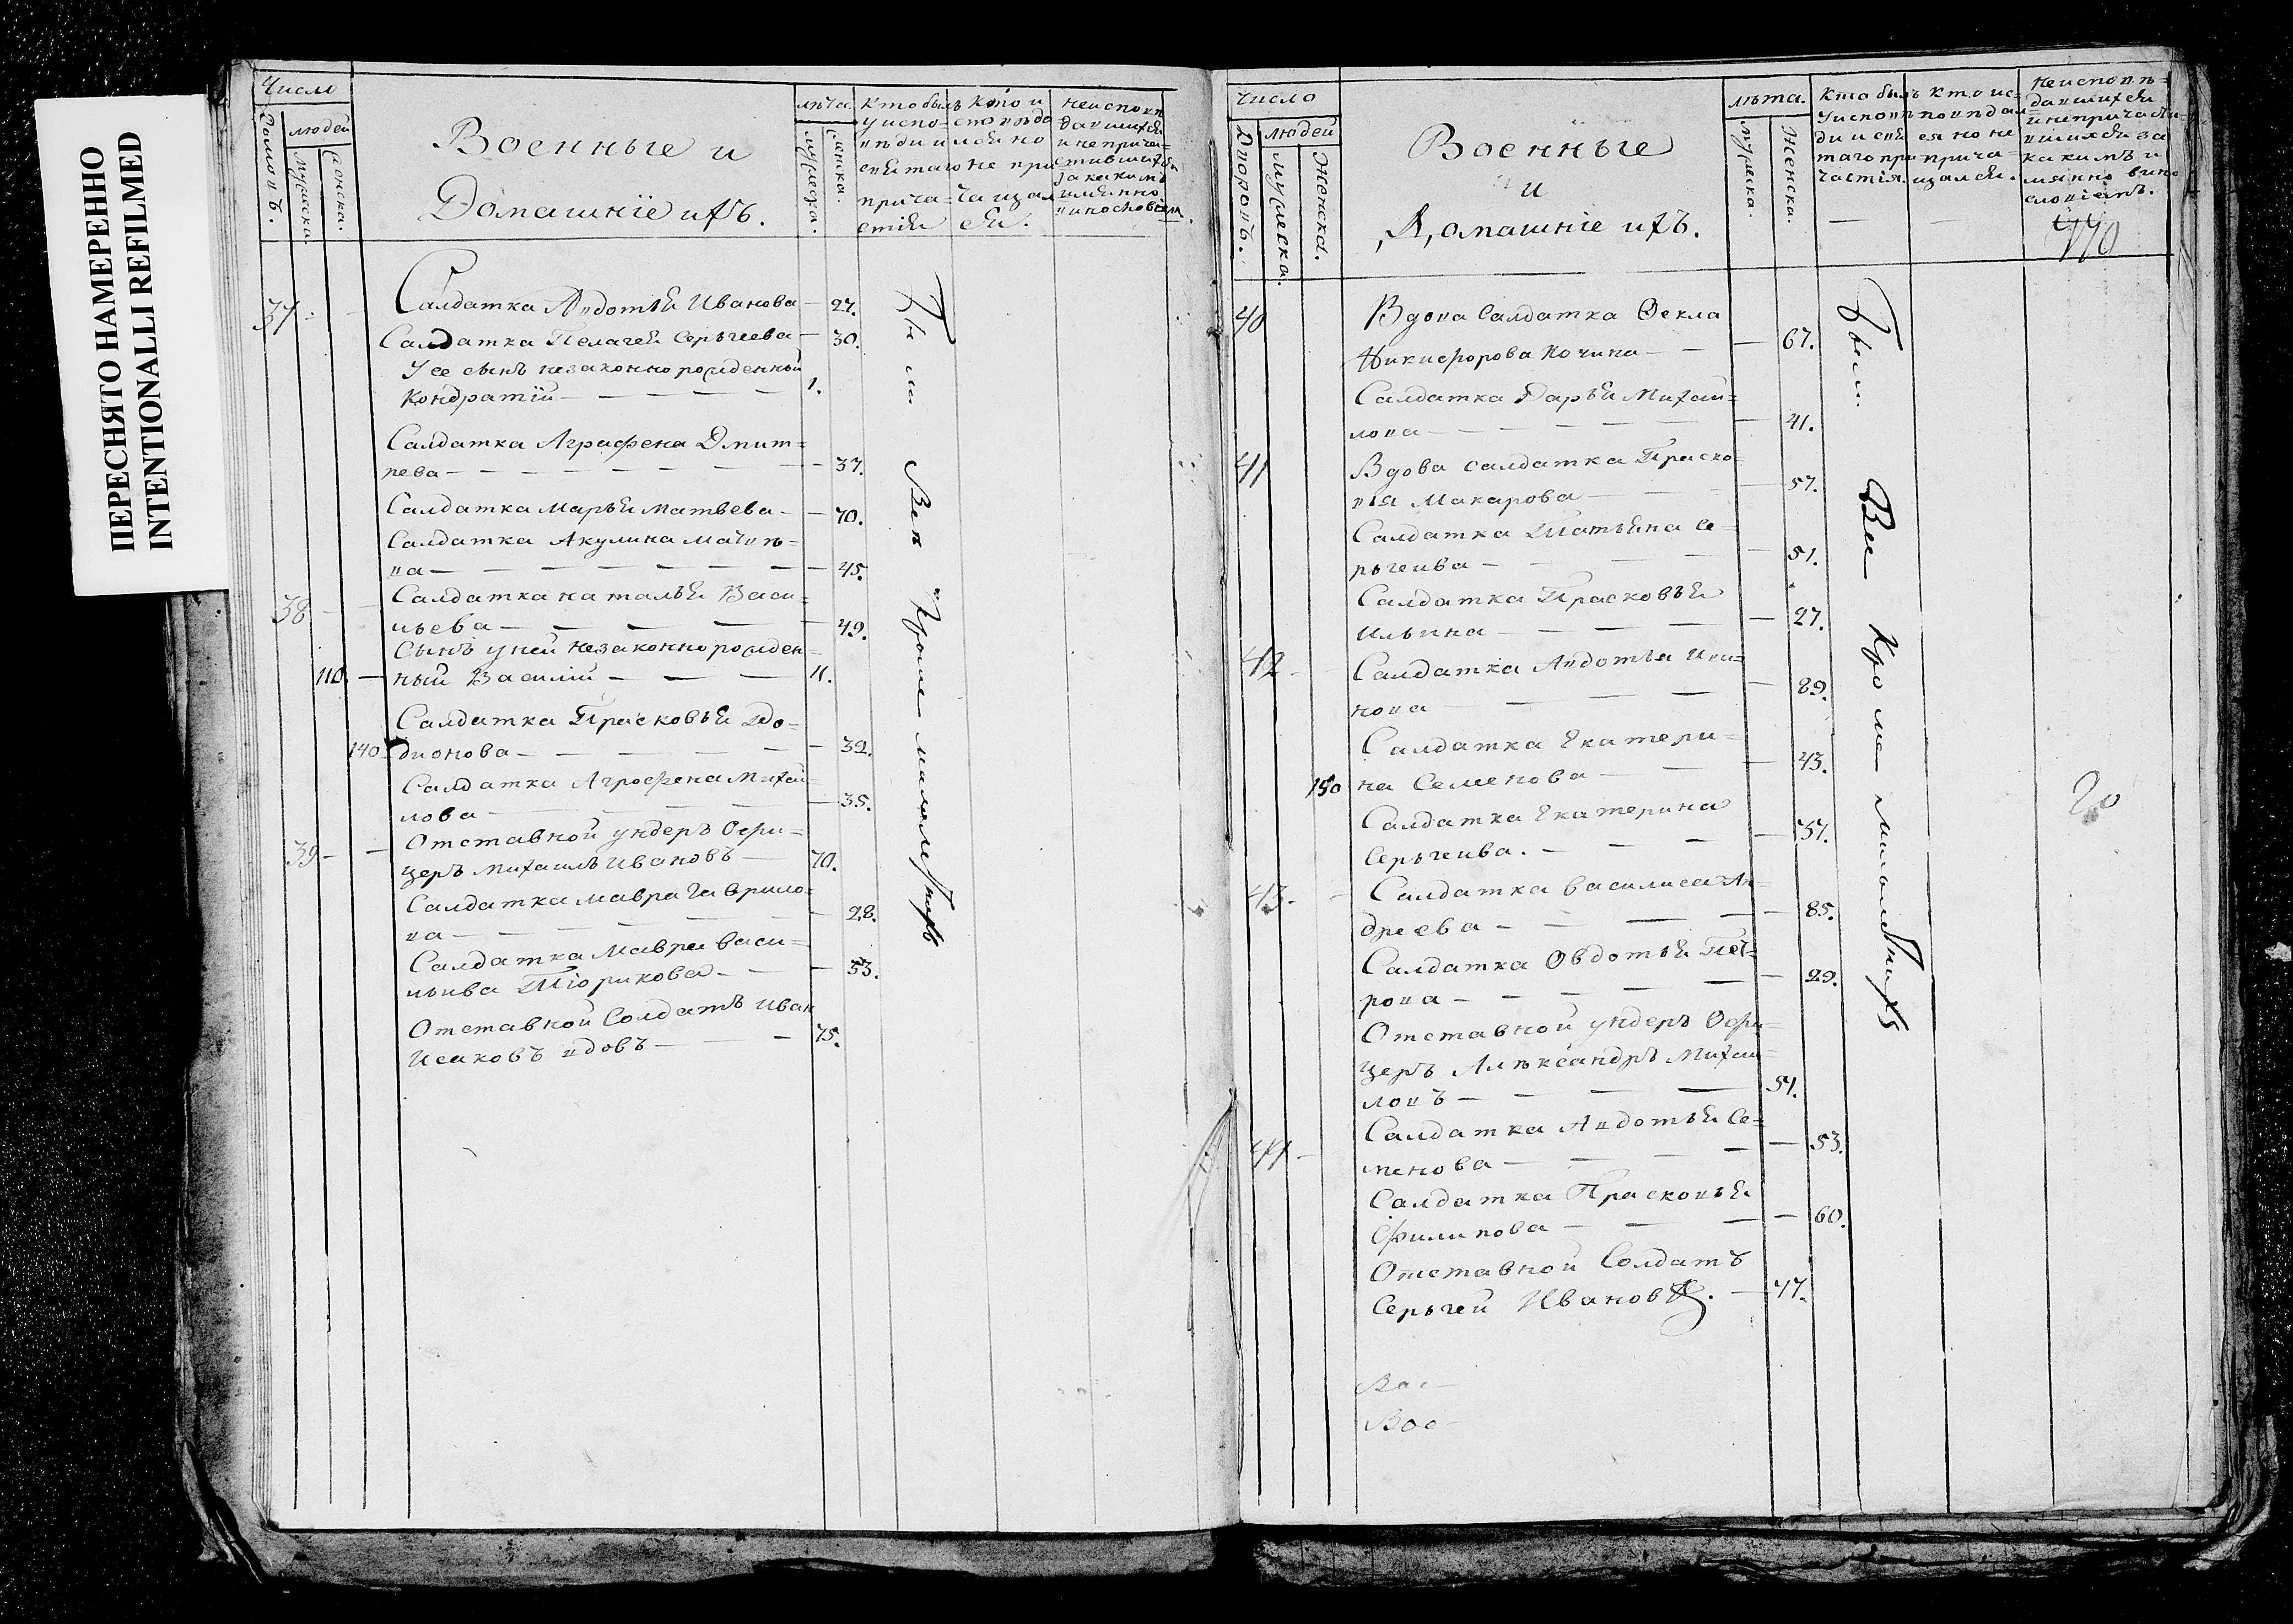 ПЕРЕСНЯТО НАМЕРЕННО
INTENTIONALLI REFILMED
Число
Домовъ.
людей
мужеска.
женска.
Военные и
Домашніе ихъ.
лѣта.
мужеска.
женска.
Кто былъ
у испо-
вѣди и
святаго
прича-
стія
Кто и
сповѣда
лся но
не при
чащал
ся.
Неисповѣ
давшихся
и не прича-
стившихся
за какимъ
имянно
37
Салдатка Авдотья Иванова — 27.
Салдатка Пелагея Серьгеева — 30.
У ее сынъ незаконнорожденный
Кондратій — 1.
Салдатка Аграфена Дмит=
рева — 37.
Салдатка Марья Матвеева — 70.
Салдатка Акулина Матвѣ=
ва — 45.
38
Салдатка наталья Васи=
льева — 49.
Сынъ у ней незаконнорожден=
110. — ный Василій — 11.
Салдатка Прасковья Ро-
140 дионова — 39.
Салдатка Аграфена Михаи
лова — 35.
39
Отставной ундеръ Офи=
церъ Михаилъ Ивановъ — 70.
Салдатка мавра Гаврило=
ва — 28.
Салдатка Мавра васи=
льива Тюрикова — 53.
Отставной Солдатъ Иван
Исаковъ вдовъ — 75.
Были
Все
Кроме
малолетныхъ
Число
Дворовъ.
людей
мужеска.
Женска.
Военные
и
Домашніе ихъ.
лѣта.
мужеска.
женска.
Кто былъ
Уиспов
ди и свя
таго при
частія.
кто ис=
повѣдал
ся но не
прича=
щался.
Неисповѣ=
давшихся
и непричасти
вшихся за
какимъ и
мянно вино
словіемъ.
40
Вдова Салдатка Фекла
Никифорова Кочина — 67.
Салдатка Дарья Михаи=
лова — 41.
41
Вдова салдатка Праско=
вья Макарова — 57.
Салдатка Татьяна Се=
рьгеива — 51.
Салдатка Прасковья
Ильина — 27.
42
Салдатка Авдотья Иви=
нова — 89.
Салдатка Екатери=
150 на Семенова — 43.
Салдатка Екатерина
Серьгеива. — 37.
43.
Салдатка василиса Ан=
дреева — 85.
Салдатка Овдотья Пет=
рова — 29.
Отставной ундеръ Офи=
церъ Александръ Михаи=
ловъ — 51.
44
Салдатка Авдотья Се=
менова — 53.
Салдатка Прасковья
Филипова — 60.
Отставной Солдатъ
Серьгей Ивановъ. — 47.
Были
Все
Кроме
малолетнахъ
20
Вос—
Вос—